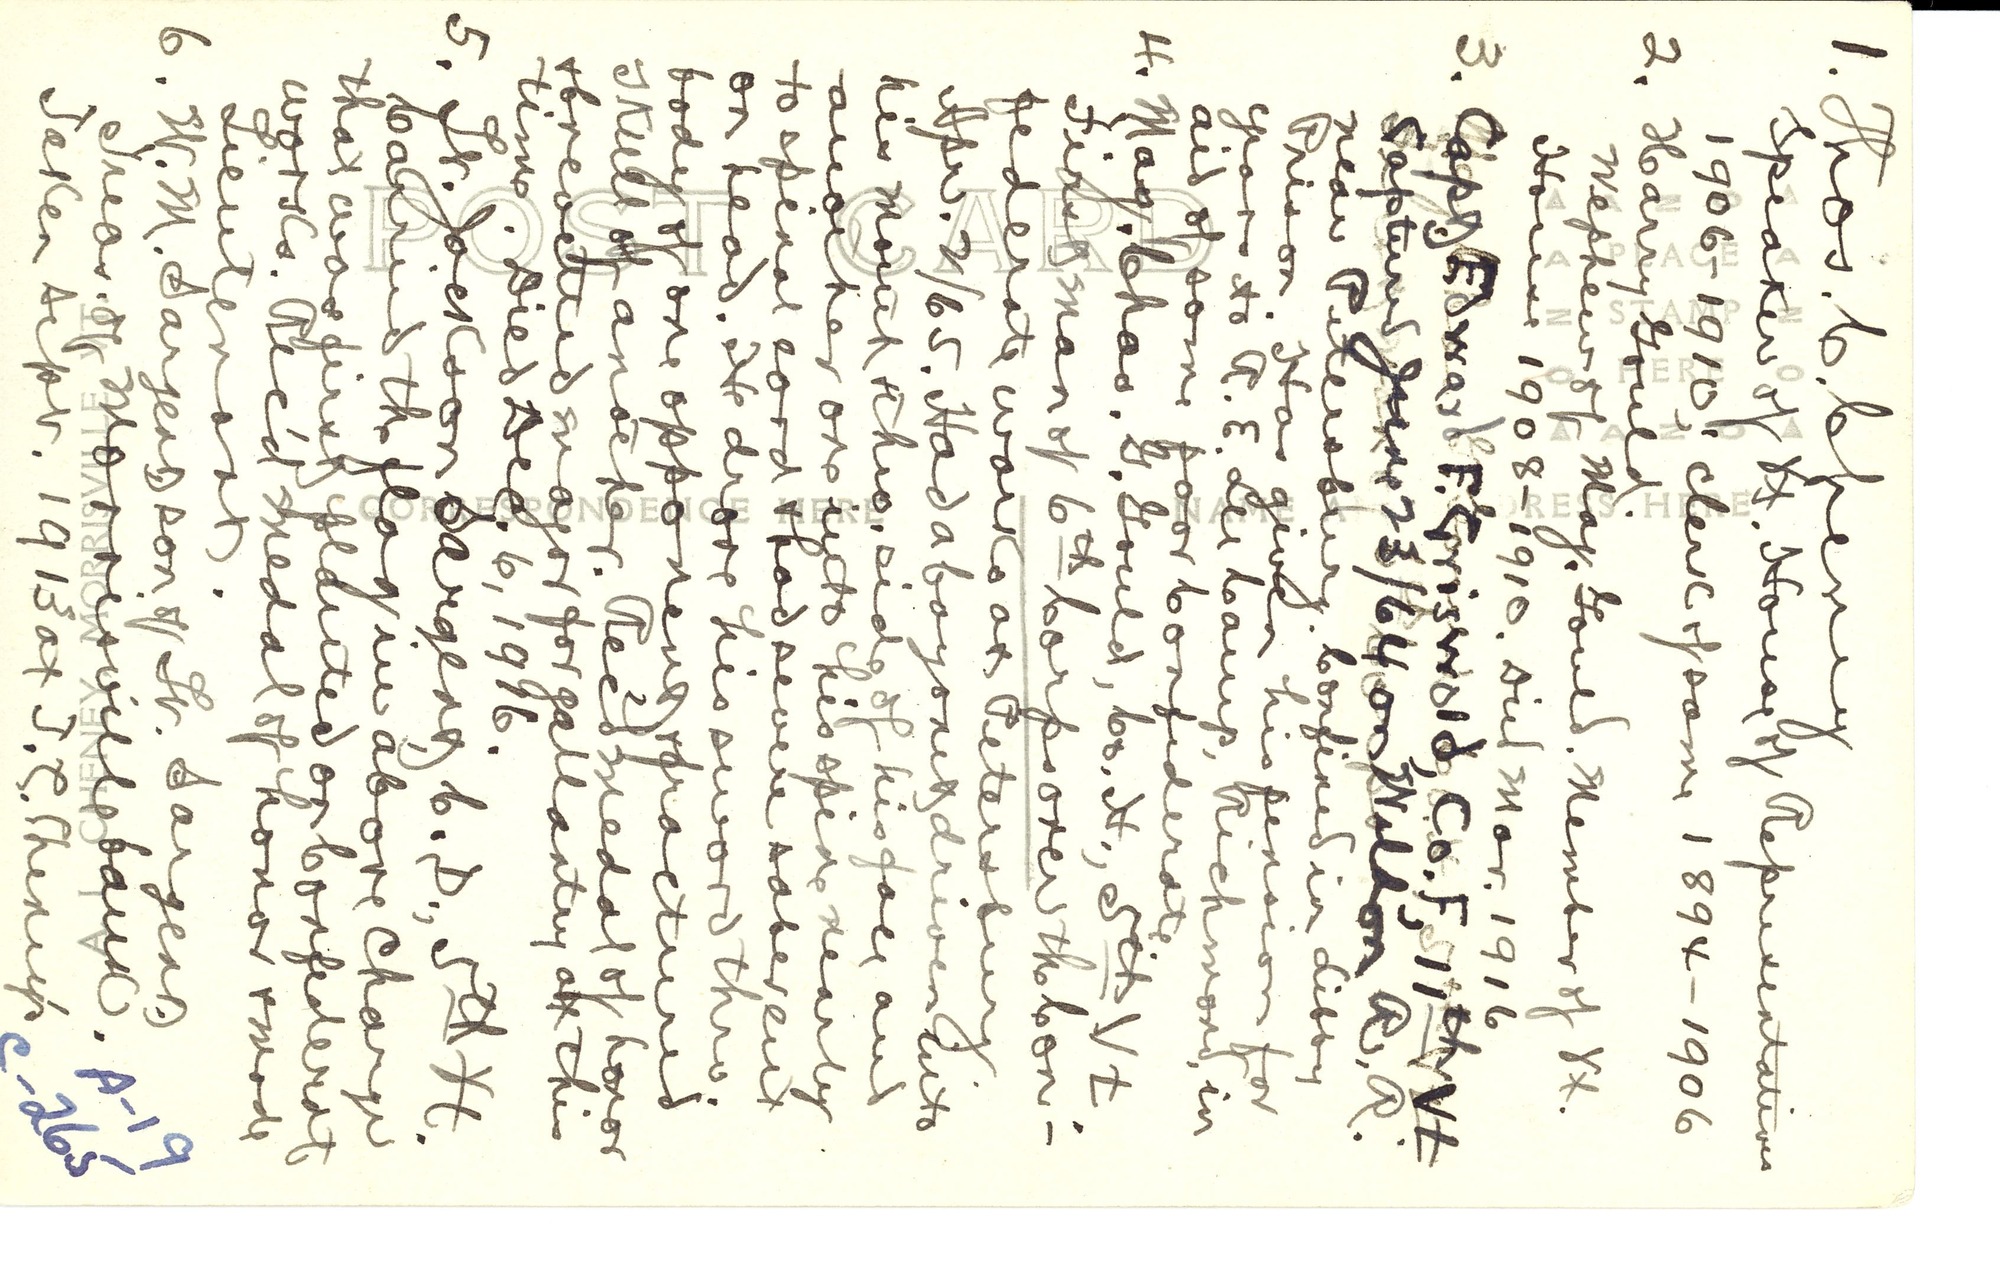 1. Thos. C. Cheney
Speaker of Vt. House of Representatives
1906-1910. Clerk of same 1894-1906
2. Harry Gould.
Nephew of Maj. Gould. Member of Vt.
House 1908-1910. Died Mar. 1916
3. Capt Edward F. Griswold, Co. F, 11th Vt
Captured June 23/64 on Weldon R. R.
near Petersburg. Confined in Libby
Prison. Has given his pension for
years to R. E. Lee Camp, Richmond, in
aid of some poor Confederate
4. Maj. Chas. G. Gould, Co. H., 5th Vt
First man of 6th Corps over the Con-
federate works at Petersburg
Apr. 2/65. Had a bayonet driven into
his mouth thro. side of his face and
another one into his spine nearly
to spinal cord & had severe saber cut
on head. He drove his sword thro.
body of one opponent & fractured
skull of another. Rec'd medal of honor
& brevetted major for gallantry at this
time. Died Dec. 6, 1916.
5. Lt. Jackson Sargent, C. D., 5th Vt.
Carried the flag in above charge
that was first planted on Confederate
works. Rec'd medal of honor & made
Lieutenant.
6. W. M. Sargent son of Lt. Sargent
Treas. of Morrisville bank.
Taken Sept. 1913 at T. C. Cheney's
A-19
C-265
POST CARD
PLACE
STAMP
HERE
CORRESPONDENCE HERE
NAME ADDRESS HERE
CHENEY MORRISVILLE VT